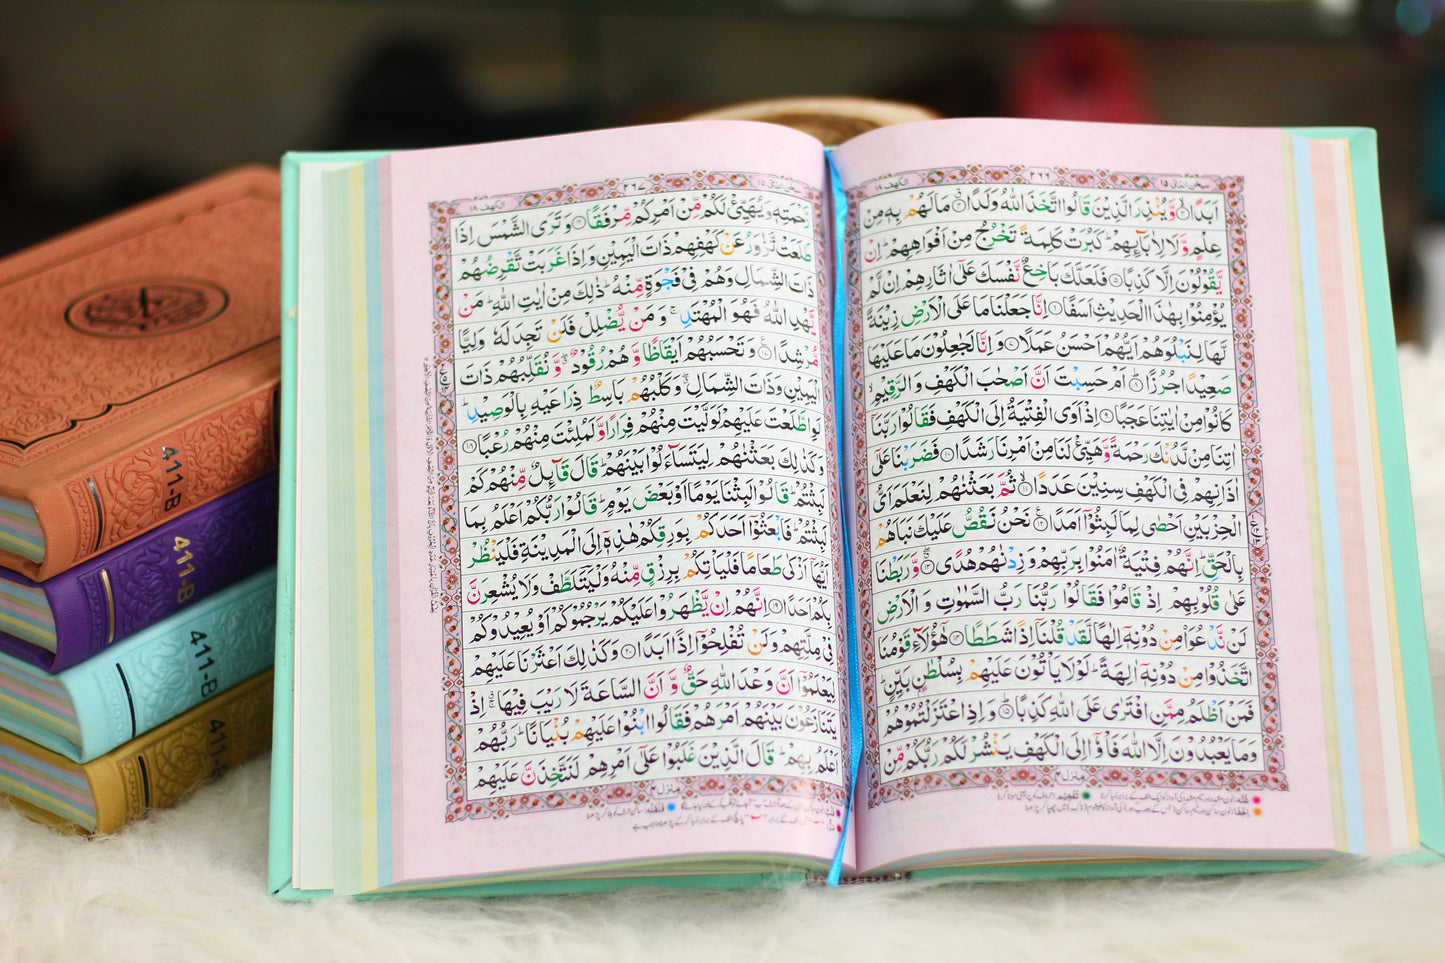 سبحن الذی ١٥ ٢٦٦ الکهف ١٨
اَبَدًا ۙ﴿۳﴾ وَّ یُنْذِرَ الَّذِیْنَ قَالُوا اتَّخَذَ اللّٰهُ وَلَدًا ﴿۴﴾ مَا لَهُمْ بِهٖ مِنْ
عِلْمٍ وَّ لَا لِاٰبَآىِٕهِمْ ؕ كَبُرَتْ كَلِمَةً تَخْرُجُ مِنْ اَفْوَاهِهِمْ ؕ اِنْ
یَّقُوْلُوْنَ اِلَّا كَذِبًا ﴿۵﴾ فَلَعَلَّكَ بَاخِعٌ نَّفْسَكَ عَلٰۤی اٰثَارِهِمْ اِنْ لَّمْ
یُؤْمِنُوْا بِهٰذَا الْحَدِیْثِ اَسَفًا ﴿۶﴾ اِنَّا جَعَلْنَا مَا عَلَی الْاَرْضِ زِیْنَةً
لَّهَا لِنَبْلُوَهُمْ اَیُّهُمْ اَحْسَنُ عَمَلًا ﴿۷﴾ وَ اِنَّا لَجٰعِلُوْنَ مَا عَلَیْهَا
صَعِیْدًا جُرُزًا ؕ﴿۸﴾ اَمْ حَسِبْتَ اَنَّ اَصْحٰبَ الْكَهْفِ وَ الرَّقِیْمِ ۙ
كَانُوْا مِنْ اٰیٰتِنَا عَجَبًا ﴿۹﴾ اِذْ اَوَی الْفِتْیَةُ اِلَی الْكَهْفِ فَقَالُوْا رَبَّنَاۤ
اٰتِنَا مِنْ لَّدُنْكَ رَحْمَةً وَّ هَیِّئْ لَنَا مِنْ اَمْرِنَا رَشَدًا ﴿۱۰﴾ فَضَرَبْنَا عَلٰۤی
اٰذَانِهِمْ فِی الْكَهْفِ سِنِیْنَ عَدَدًا ۙ﴿۱۱﴾ ثُمَّ بَعَثْنٰهُمْ لِنَعْلَمَ اَیُّ
الْحِزْبَیْنِ اَحْصٰی لِمَا لَبِثُوْۤا اَمَدًا ﴿۱۲﴾ نَحْنُ نَقُصُّ عَلَیْكَ نَبَاَهُمْ
بِالْحَقِّ ؕ اِنَّهُمْ فِتْیَةٌ اٰمَنُوْا بِرَبِّهِمْ وَ زِدْنٰهُمْ هُدًی ﴿۱۳﴾ وَّ رَبَطْنَا
عَلٰی قُلُوْبِهِمْ اِذْ قَامُوْا فَقَالُوْا رَبُّنَا رَبُّ السَّمٰوٰتِ وَ الْاَرْضِ
لَنْ نَّدْعُوَا۠ مِنْ دُوْنِهٖۤ اِلٰهًا لَّقَدْ قُلْنَاۤ اِذًا شَطَطًا ﴿۱۴﴾ هٰۤؤُلَآءِ قَوْمُنَا
اتَّخَذُوْا مِنْ دُوْنِهٖۤ اٰلِهَةً ؕ لَوْ لَا یَاْتُوْنَ عَلَیْهِمْ بِسُلْطٰنٍۭ بَیِّنٍ ؕ
فَمَنْ اَظْلَمُ مِمَّنِ افْتَرٰی عَلَی اللّٰهِ كَذِبًا ؕ﴿۱۵﴾ وَ اِذِ اعْتَزَلْتُمُوْهُمْ
وَ مَا یَعْبُدُوْنَ اِلَّا اللّٰهَ فَاْوٗۤا اِلَی الْكَهْفِ یَنْشُرْ لَكُمْ رَبُّكُمْ مِّنْ
منزل ٤
سبحن الذی ١٥ ٢٦٧ الکهف ١٨
رَّحْمَتِهٖ وَ یُهَیِّئْ لَكُمْ مِّنْ اَمْرِكُمْ مِّرْفَقًا ﴿۱۶﴾ وَ تَرَی الشَّمْسَ اِذَا
طَلَعَتْ تَّزٰوَرُ عَنْ كَهْفِهِمْ ذَاتَ الْیَمِیْنِ وَ اِذَا غَرَبَتْ تَّقْرِضُهُمْ
ذَاتَ الشِّمَالِ وَ هُمْ فِیْ فَجْوَةٍ مِّنْهُ ؕ ذٰلِكَ مِنْ اٰیٰتِ اللّٰهِ ؕ مَنْ
یَّهْدِ اللّٰهُ فَهُوَ الْمُهْتَدِ ۚ وَ مَنْ یُّضْلِلْ فَلَنْ تَجِدَ لَهٗ وَلِیًّا
مُّرْشِدًا ﴿۱۷﴾ وَ تَحْسَبُهُمْ اَیْقَاظًا وَّ هُمْ رُقُوْدٌ ۖۗ وَّ نُقَلِّبُهُمْ ذَاتَ
الْیَمِیْنِ وَ ذَاتَ الشِّمَالِ ۖۗ وَ كَلْبُهُمْ بَاسِطٌ ذِرَاعَیْهِ بِالْوَصِیْدِ ؕ
لَوِ اطَّلَعْتَ عَلَیْهِمْ لَوَلَّیْتَ مِنْهُمْ فِرَارًا وَّ لَمُلِئْتَ مِنْهُمْ رُعْبًا ﴿۱۸﴾
وَ كَذٰلِكَ بَعَثْنٰهُمْ لِیَتَسَآءَلُوْا بَیْنَهُمْ ؕ قَالَ قَآىِٕلٌ مِّنْهُمْ كَمْ
لَبِثْتُمْ ؕ قَالُوْا لَبِثْنَا یَوْمًا اَوْ بَعْضَ یَوْمٍ ؕ قَالُوْا رَبُّكُمْ اَعْلَمُ بِمَا
لَبِثْتُمْ ؕ فَابْعَثُوْۤا اَحَدَكُمْ بِوَرِقِكُمْ هٰذِهٖۤ اِلَی الْمَدِیْنَةِ فَلْیَنْظُرْ
اَیُّهَاۤ اَزْكٰی طَعَامًا فَلْیَاْتِكُمْ بِرِزْقٍ مِّنْهُ وَ لْیَتَلَطَّفْ وَ لَا یُشْعِرَنَّ
بِكُمْ اَحَدًا ﴿۱۹﴾ اِنَّهُمْ اِنْ یَّظْهَرُوْا عَلَیْكُمْ یَرْجُمُوْكُمْ اَوْ یُعِیْدُوْكُمْ
فِیْ مِلَّتِهِمْ وَ لَنْ تُفْلِحُوْۤا اِذًا اَبَدًا ﴿۲۰﴾ وَ كَذٰلِكَ اَعْثَرْنَا عَلَیْهِمْ
لِیَعْلَمُوْۤا اَنَّ وَعْدَ اللّٰهِ حَقٌّ وَّ اَنَّ السَّاعَةَ لَا رَیْبَ فِیْهَا ۚ اِذْ
یَتَنَازَعُوْنَ بَیْنَهُمْ اَمْرَهُمْ فَقَالُوا ابْنُوْا عَلَیْهِمْ بُنْیَانًا ؕ رَبُّهُمْ
اَعْلَمُ بِهِمْ ؕ قَالَ الَّذِیْنَ غَلَبُوْا عَلٰۤی اَمْرِهِمْ لَنَتَّخِذَنَّ عَلَیْهِمْ
منزل ٤
411-B
411-B
411-B
411-B